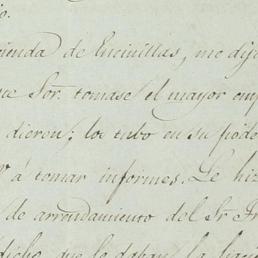 io.
ienda de Encinillas, me dij
ue Sor. tomase el mayor em
dieron; los tubo en su pode
á tomar informes. Le hi
de arrendamiento del Sr. Fr
dicho que le daban la haci